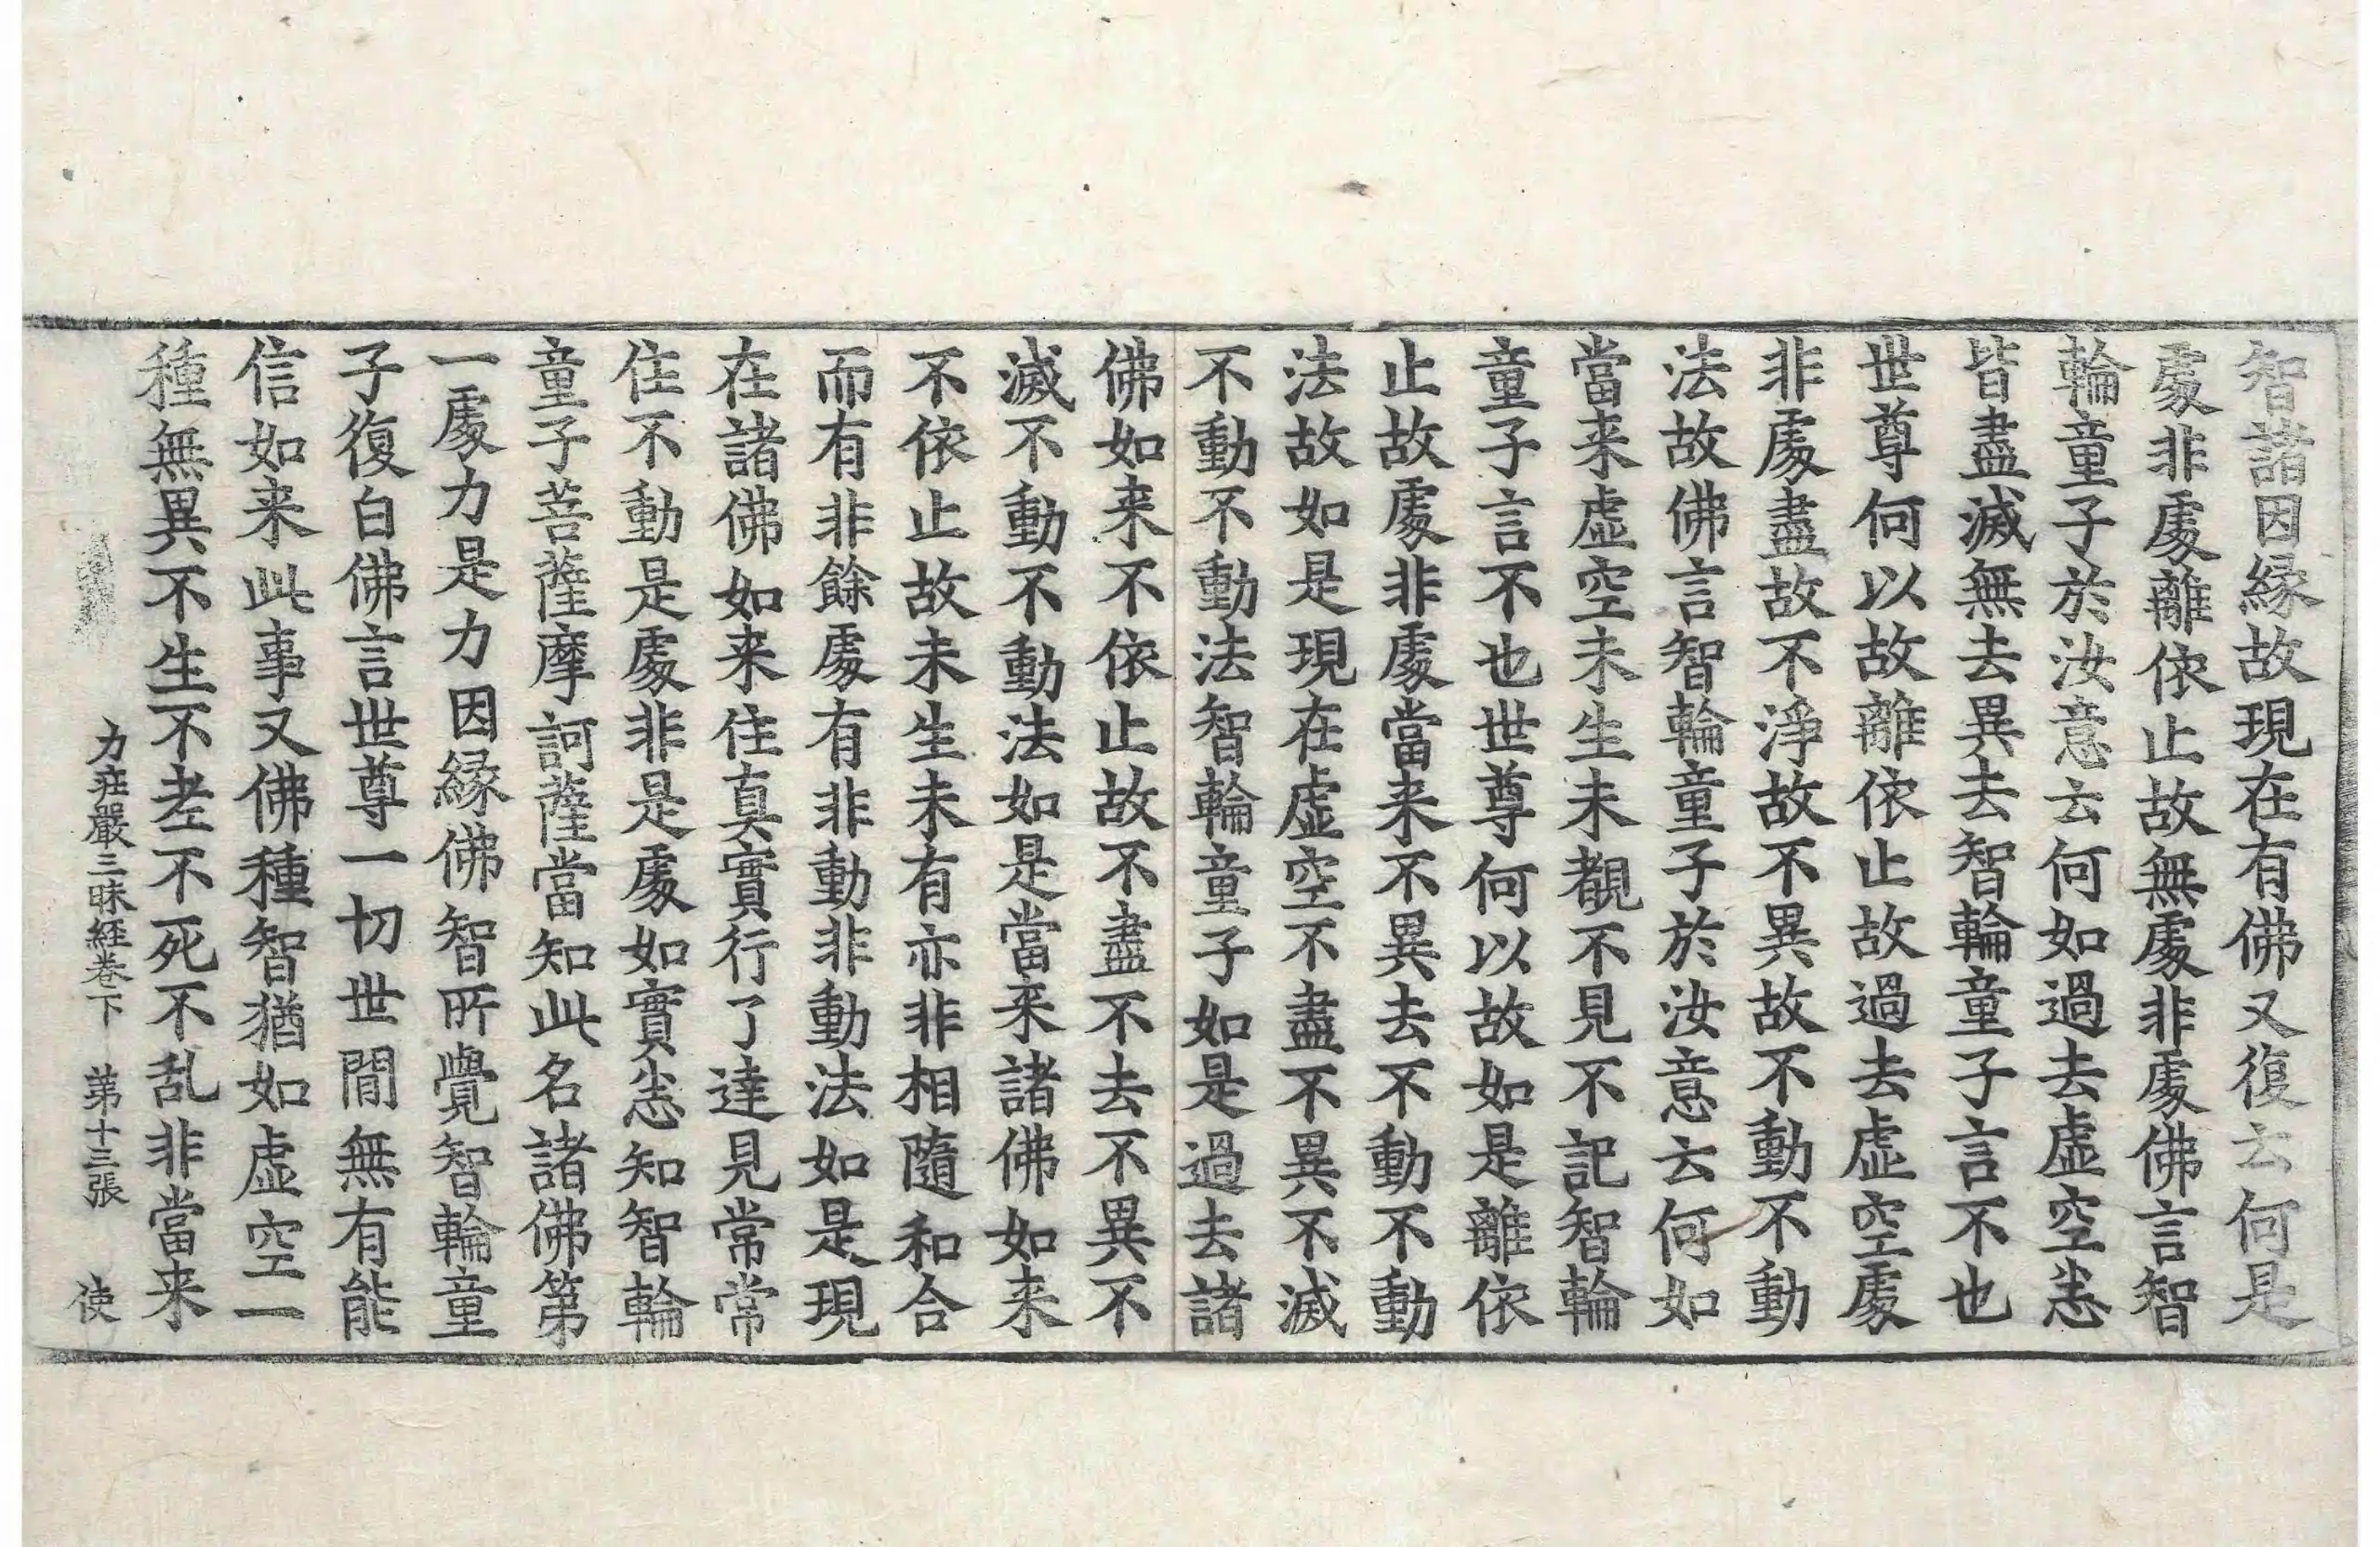 智諸因緣故現在有佛又復云何是
處非處離依止故無處非處佛言智
輪童子於汝意云何如過去虛空悉
皆盡滅無去異去智輪童子言不也
世尊何以故離依止故過去虛空處
非處盡故不淨故不異故不動不動
法故佛言智輪童子於汝意云何如
當来虛空未生未覩不見不記智輪
童子言不也世尊何以故如是離依
止故處非處當来不異去不動不動
法故如是現在虛空不盡不異不滅
不動不動法智輪童子如是過去諸
佛如来不依止故不盡不去不異不
滅不動不動法如是當来諸佛如来
不依止故未生未有亦非相隨和合
而有非餘處有非動非動法如是現
在諸佛如来住真實行了達見常常
住不動是處非是處如實悉知智輪
童子菩薩摩訶薩當知此名諸佛第
一處力是力因緣佛智所覺智輪童
子復白佛言世尊一切世間無有能
信如来此事又佛種智猶如虛空一
種無異不生不老不死不乱非當来
力莊嚴三昧経卷下　第十三張　使